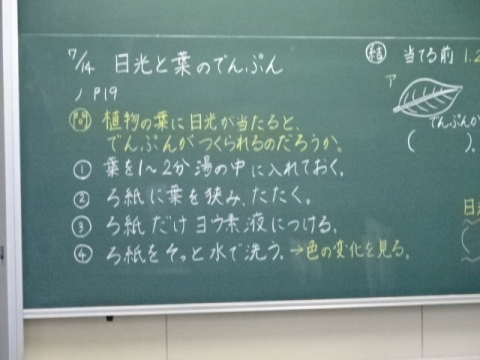 7/14 日光と葉のでんぷん
ノ P19
問 植物の葉に日光が当たると、
でんぷんがつくられるのだろうか。
① 葉を1〜2分湯の中に入れておく。
② ろ紙に葉を狭み、たたく。
③ ろ紙だけヨウ素液につける。
④ ろ紙をそっと水で洗う。→色の変化を見る。
結 当てる前 1.2
ア
でんぷんが
( )。
日